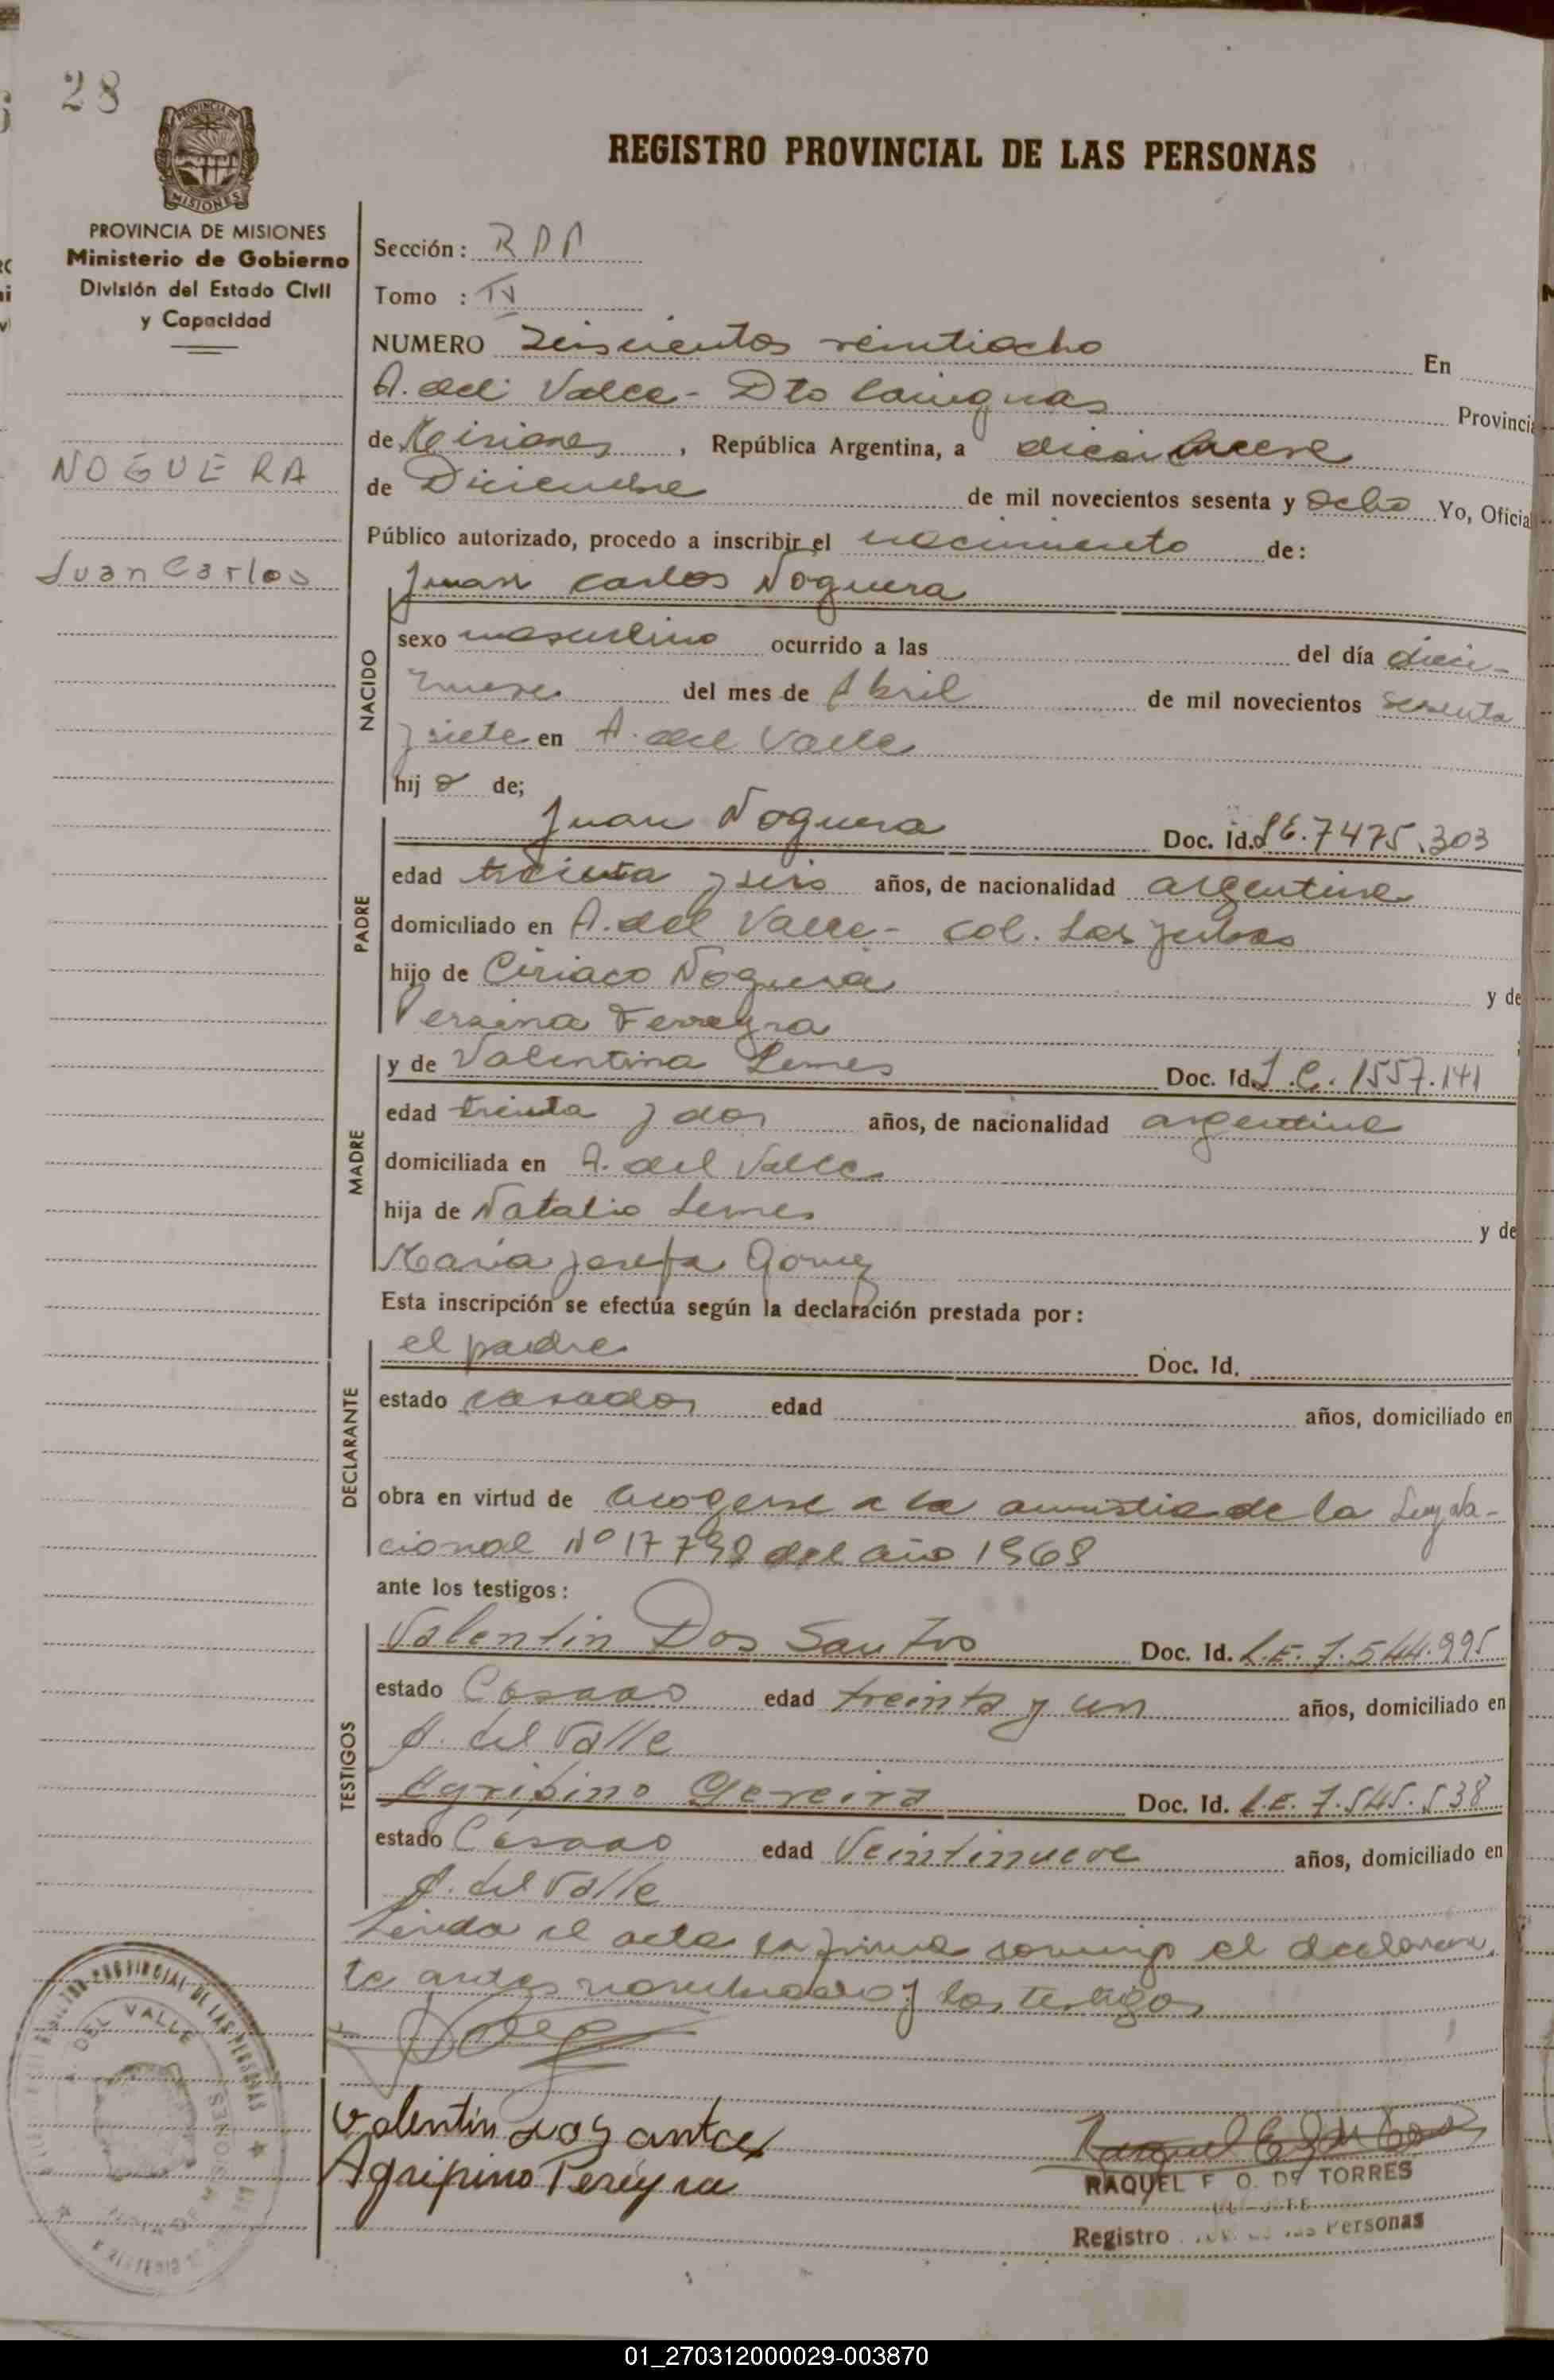 28
PROVINCIA DE
MISIONES
PROVINCIA DE MISIONES
Ministerio de Gobierno
División del Estado Civil
y Capacidad
NOGUERA
Juan Carlos
REGISTRO PROVINCIAL DE LAS PERSONAS
Sección:
Tomo : IV
NUMERO Seiscientos veintiocho En
A. del Valle - Dto Cainguas Provincia
de Misiones, República Argentina, a diecinueve
de Diciembre de mil novecientos sesenta y ocho Yo, Oficial
Público autorizado, procedo a inscribir el nacimiento de:
Juan Carlos Noguera
NACIDO
sexo masculino ocurrido a las del día dieci-
nueve del mes de Abril de mil novecientos sesenta
y siete en A. del Valle
hijo de;
PADRE
Juan Noguera Doc. Id. L.E. 7475.303
edad treinta y seis años, de nacionalidad argentina
domiciliado en A. del Valle - Col.
hijo de Ciriaco Noguera y de
Ferreyra
MADRE
y de Valentina Lemes Doc. Id. L.C. 1557.141
edad treinta y dos años, de nacionalidad argentina
domiciliada en A. del Valle
hija de Natalio Lemes y de
Maria Josefa Gomez
Esta inscripción se efectúa según la declaración prestada por:
DECLARANTE
el padre Doc. Id.
estado casados edad años, domiciliado en
obra en virtud de acogerse a la amnistia de la Ley Na-
cional Nº del año 1968
ante los testigos:
TESTIGOS
Valentin Dos Santos Doc. Id. L.E. 7.544.995
estado Casado edad treinta y un años, domiciliado en
A. del Valle
Agripino Pereira Doc. Id. L.E. 7.545.538
estado Casado edad Veintinueve años, domiciliado en
A. del Valle
Leida el acta la firma conmigo el declaran
te antes nombrado y los testigos
Valentin dos santos
Agripino Pereyra
RAQUEL F. O. DE TORRES
Registro Personas
DEL VALLE
MISIONES
01_270312000029-003870